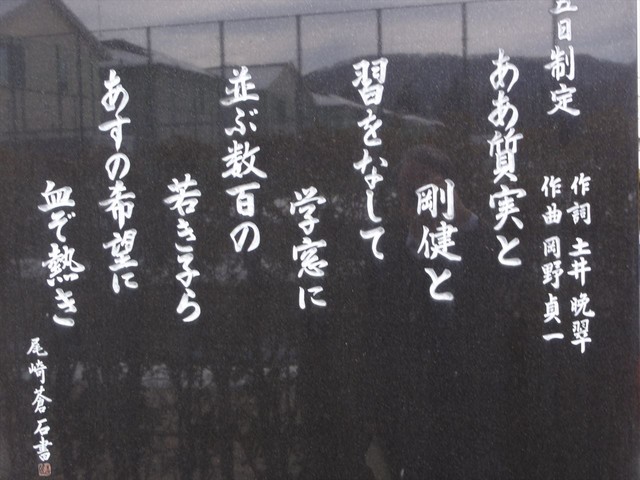 五日制定
作詞 土井晩翠
作曲 岡野貞一
ああ質実と
剛健と
習をなして
学窓に
並ぶ数百の
若き子ら
あすの希望に
血ぞ熱き
尾崎蒼石書